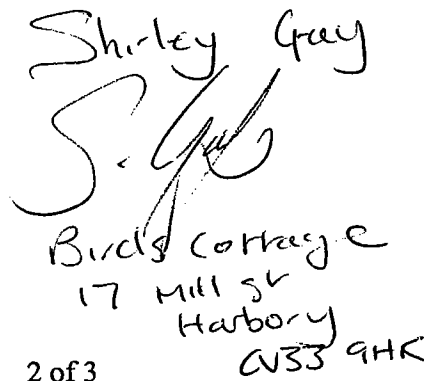 Shirley Gray
S. Gray
Birds Cottage
17 Mill st
Harbory
CV33 9HK
2 of 3